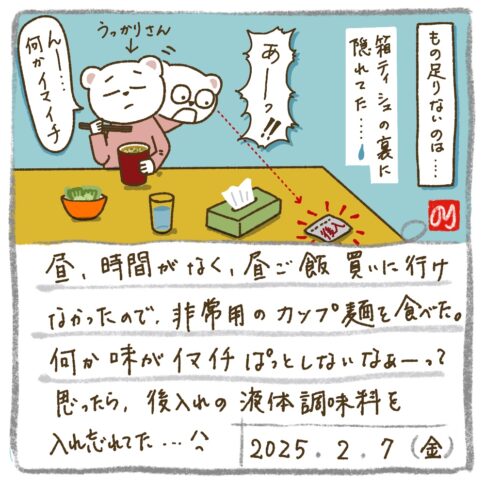 もの足りないのは……
箱ティシュの裏に
隠れてた……
あーっ!!
うっかりさん
んー……
何かイマイチ
後入れ
昼、時間がなく、昼ご飯買いに行け
なかったので、非常用のカップ麺を食べた。
何か味がイマイチぱっとしないなぁーって
思ったら、後入れの液体調味料を
入れ忘れてた…
2025.2.7(金)